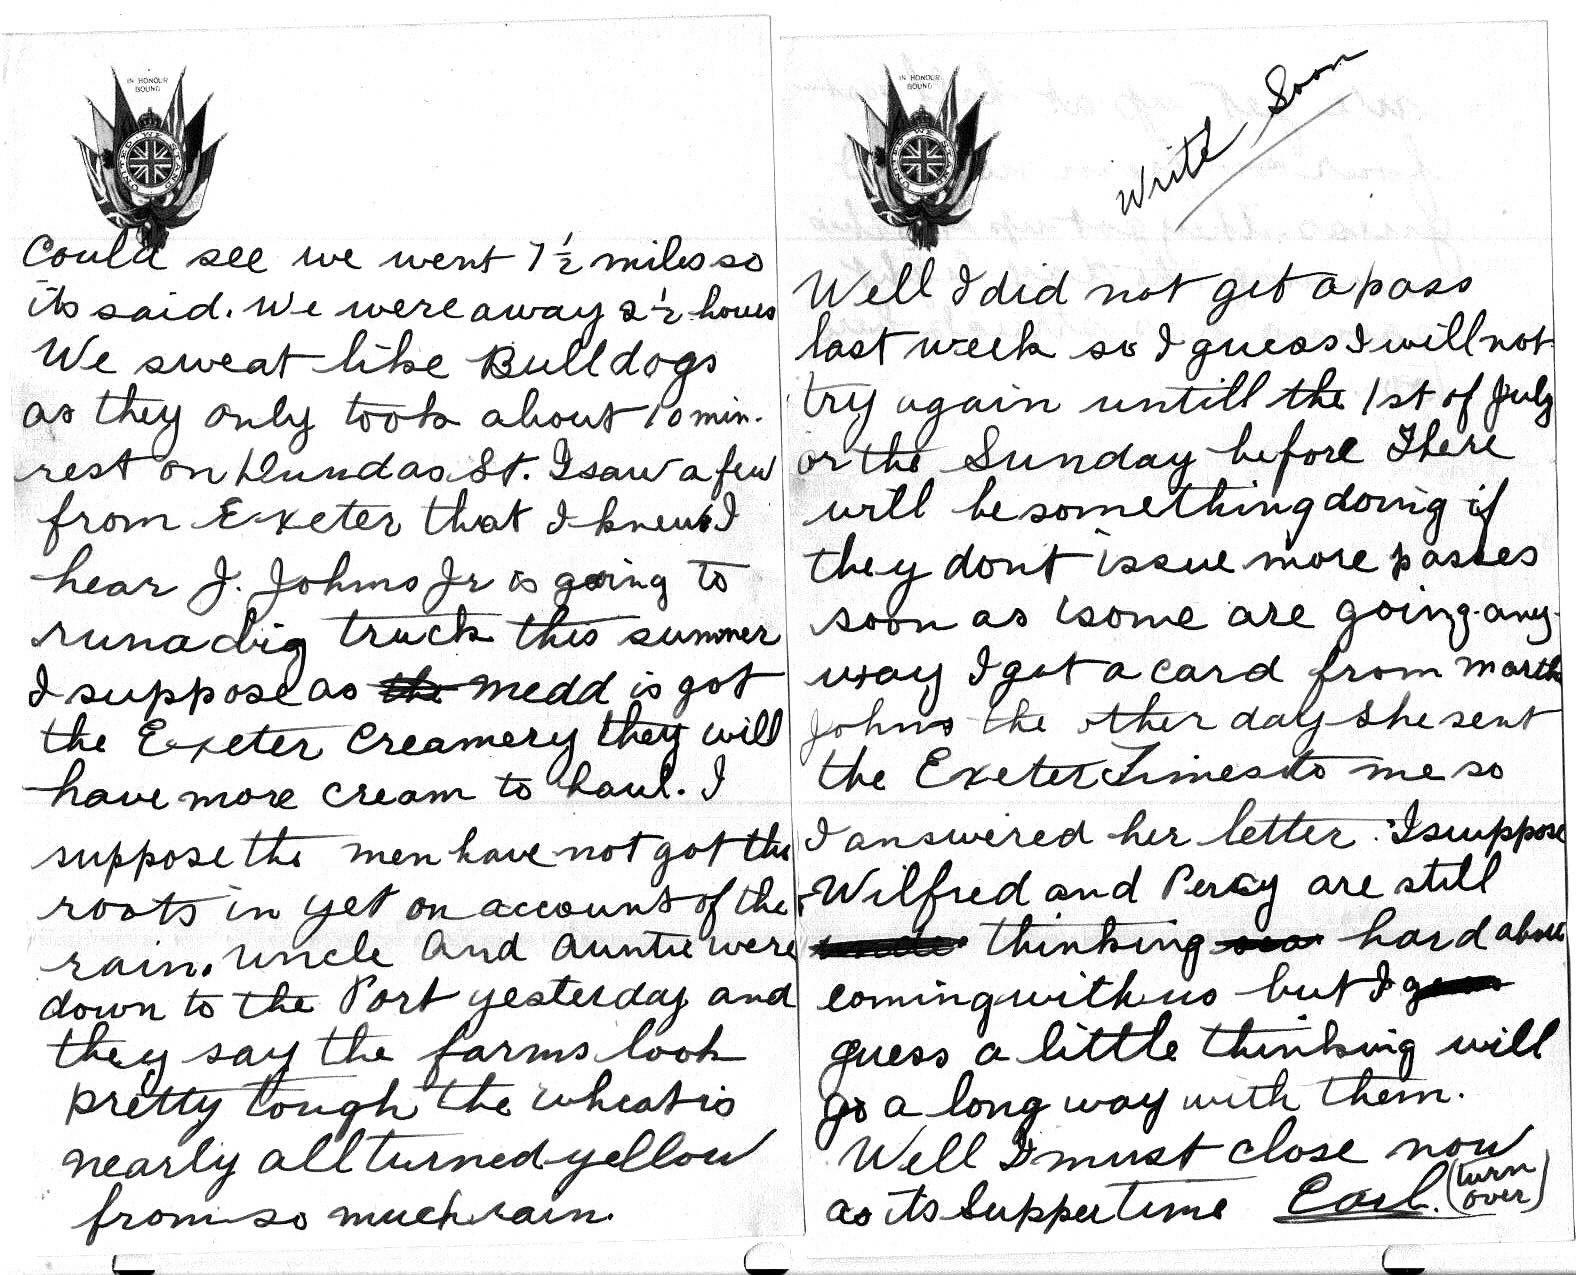 IN HONOUR
BOUND
UNITED WE STAND
Could see we went 7 1/2 miles so
its said. We were away 2 1/2 hours
We sweat like Bulldogs
as they only took about 10 min.
rest on Dundas St. I saw a few
from Exeter that I knew I
hear J. Johns Jr is going to
run a big truck this summer
I suppose as the Medd is got
the Exeter Creamery they will
have more cream to haul. I
suppose the men have not got the
roots in yet on account of the
rain. Uncle and Auntie were
down to the Port yesterday and
they say the farms look
pretty tough the wheat is
nearly all turned yellow
from so much rain.
IN HONOUR
BOUND
UNITED WE STAND
Write Soon
Well I did not get a pass
last week so I guess I will not
try again untill the 1st of July
or the Sunday before There
will be something doing if
they dont issue more passes
soon as some are going any-
way I got a card from Martha
Johns the other day She sent
the Exeter Times to me so
I answered her letter. I suppose
Wilfred and Percy are still
thinking hard about
coming with us but I
guess a little thinking will
go a long way with them.
Well I must close now
as its Supper time Earl. (turn
over)